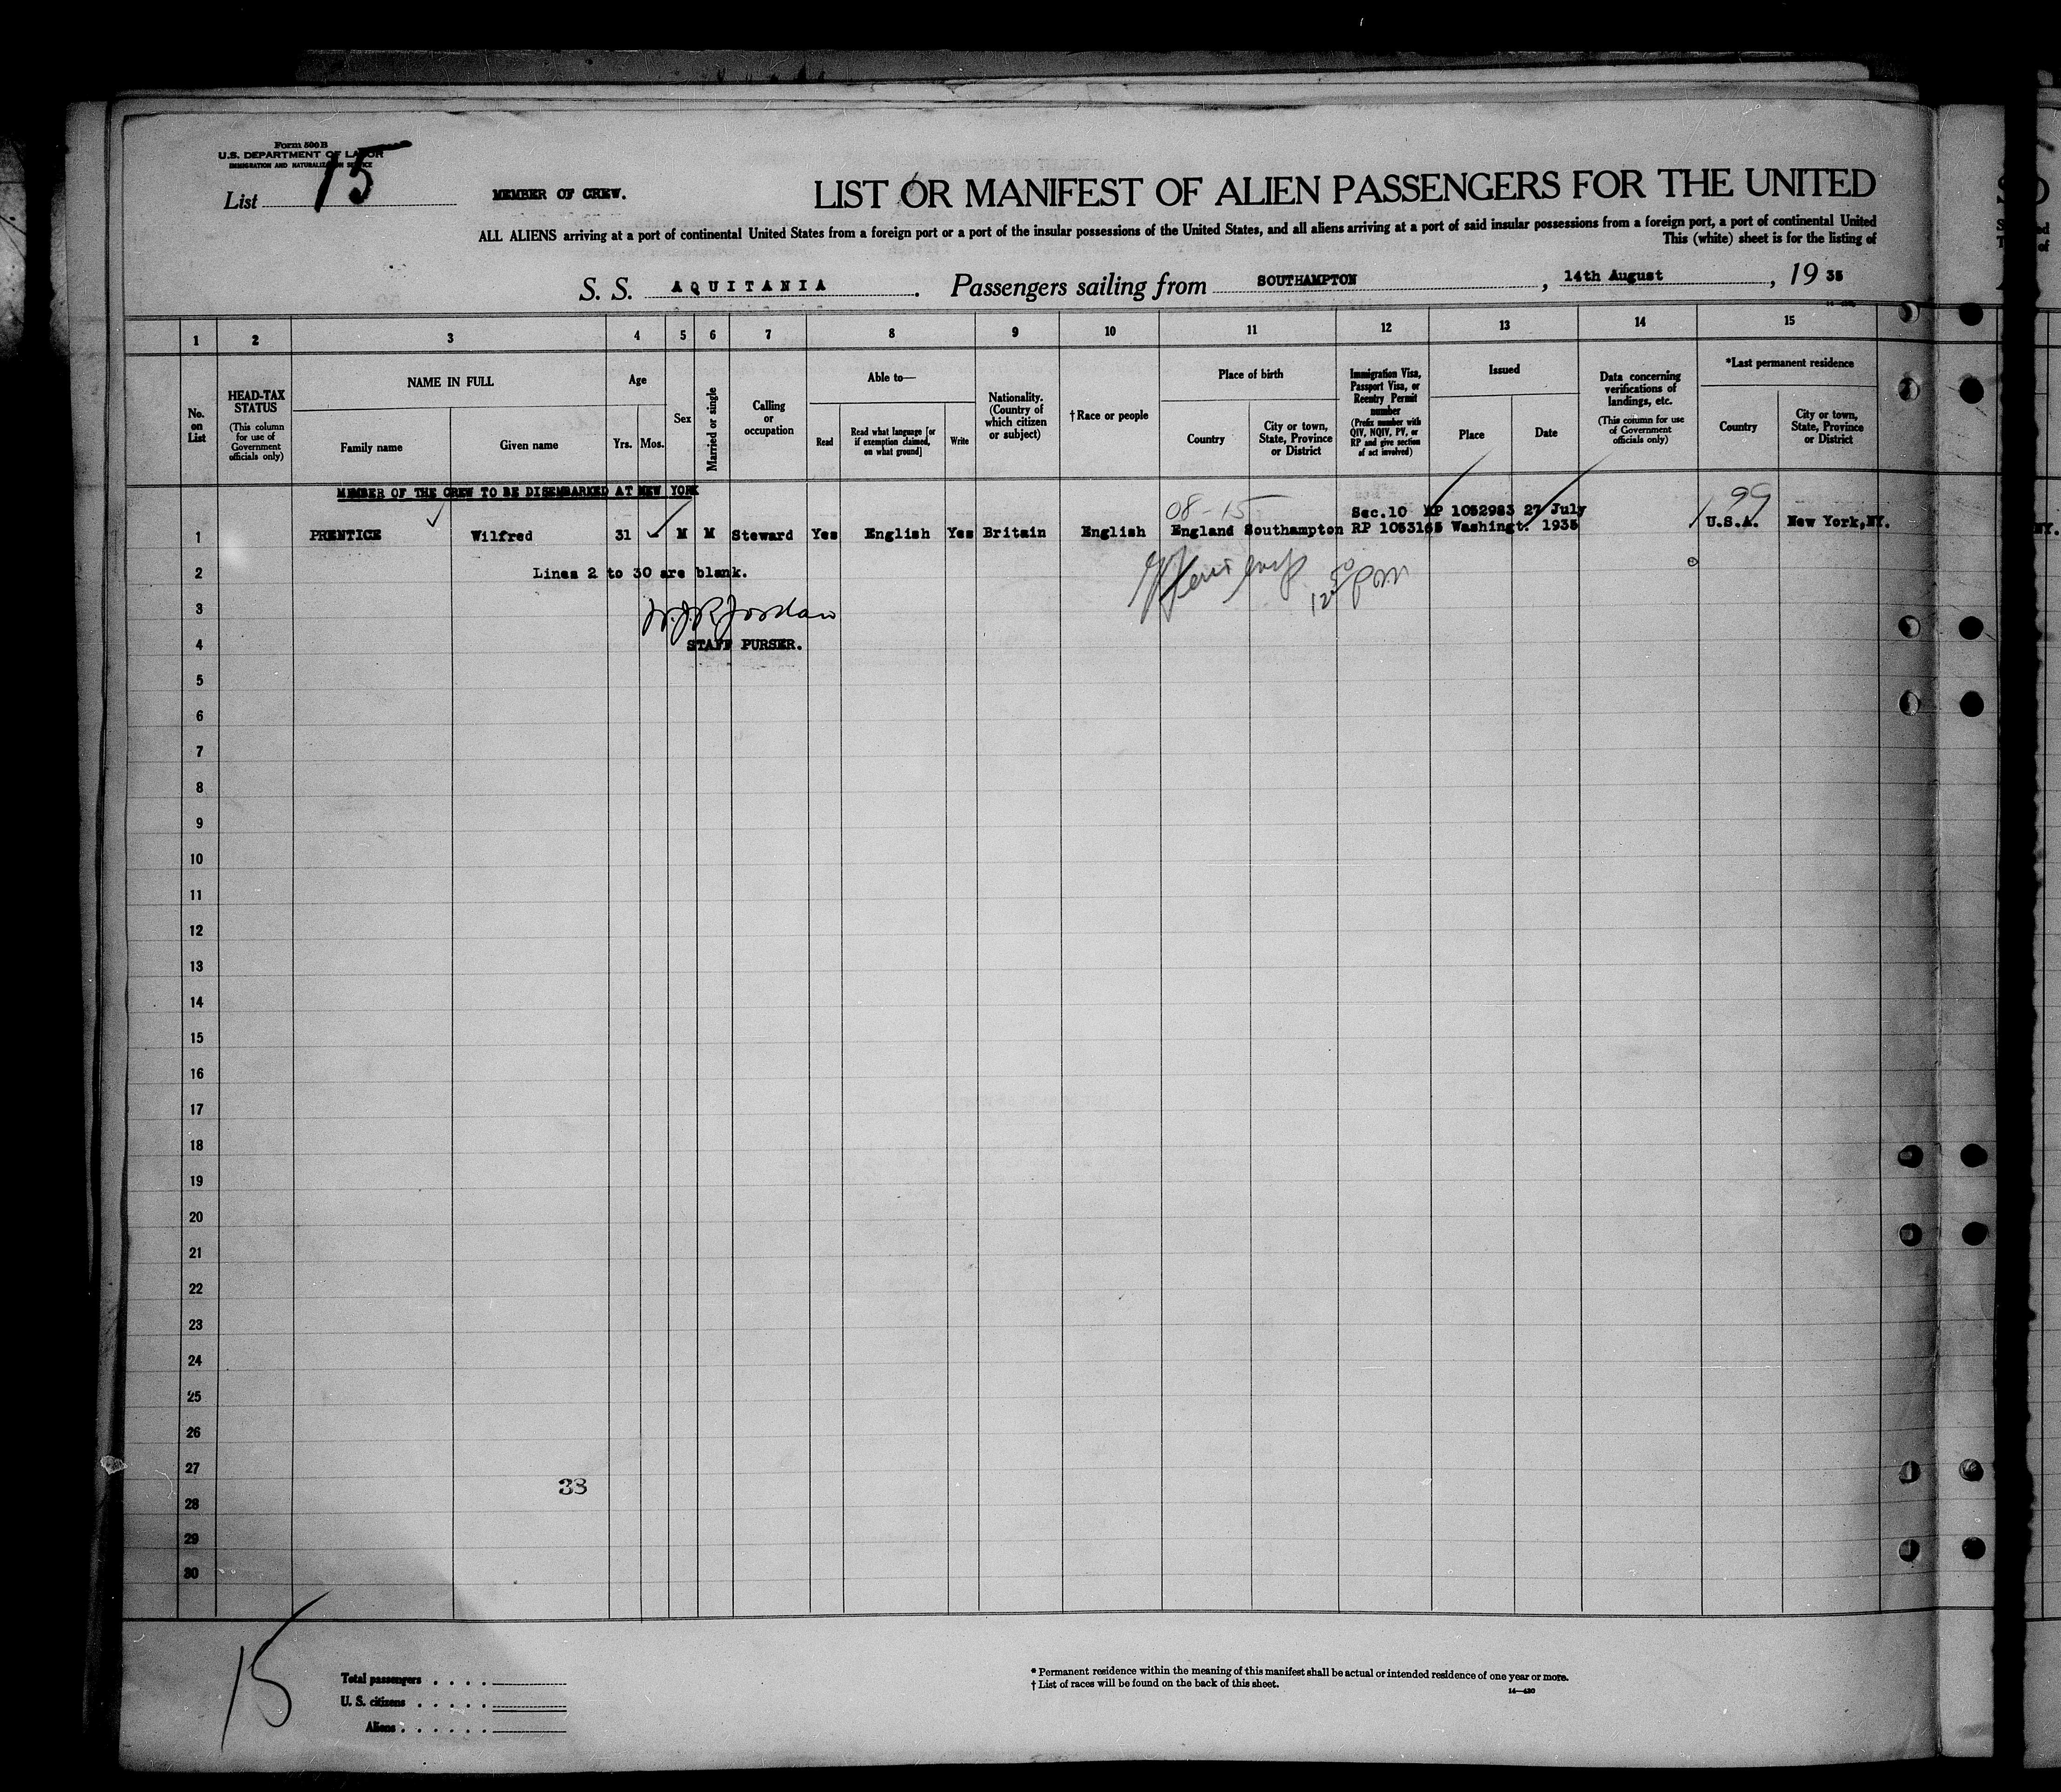 Form 500 B
U.S. DEPARTMENT OF LABOR
IMMIGRATION AND NATURALIZATION SERVICE
List 15
MEMBER OF CREW.
LIST OR MANIFEST OF ALIEN PASSENGERS FOR THE UNITED
ALL ALIENS arriving at a port of continental United States from a foreign port or a port of the insular possessions of the United States, and all aliens arriving at a port of said insular possessions from a foreign port, a port of continental United
This (white) sheet is for the listing of
S. S. AQUITANIA . Passengers sailing from SOUTHAMPTON , 14th August , 19 35
1 2 3 4 5 6 7 8 9 10 11 12 13 14 15
No. on List
HEAD-TAX STATUS
(This column for use of Government officials only)
NAME IN FULL
Family name
Given name
Age
Yrs. Mos.
Sex
Married or single
Calling or occupation
Able to—
Read
Read what language [or if exemption claimed, on what ground]
Write
Nationality. (Country of which citizen or subject)
†Race or people
Place of birth
Country
City or town, State, Province or District
Immigration Visa, Passport Visa, or Reentry Permit number
(Prefix number with QIV, NQIV, PV, or RP and give section of act involved)
Issued
Place
Date
Data concerning verifications of landings, etc.
(This column for use of Government officials only)
*Last permanent residence
Country
City or town, State, Province or District
MEMBER OF THE CREW TO BE DISEMBARKED AT NEW YORK
08-15
99
Sec.10 RP 1052983 27 July
1 PRENTICE Wilfred 31 M M Steward Yes English Yes Britain English England Southampton RP 1053165 Washingt. 1935 U.S.A. New York,NY.
2 Lines 2 to 30 are blank.
3 W.J.R. Jordan
4 STAFF PURSER.
5
6
7
8
9
10
11
12
13
14
15
16
17
18
19
20
21
22
23
24
25
26
27
38
28
29
30
15
Total passengers . . . .
U. S. citizens . . . . .
Aliens . . . . . .
* Permanent residence within the meaning of this manifest shall be actual or intended residence of one year or more.
† List of races will be found on the back of this sheet.
14—430